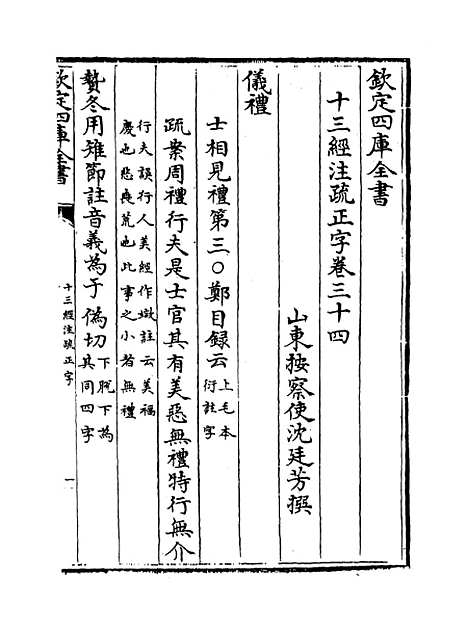 欽定四庫全書
十三經注疏正字卷三十四
山東按察使沈廷芳撰
儀禮
士相見禮第三○鄭目録云上毛本
衍註字
疏案周禮行夫是士官其有美惡無禮特行無介
行夫誤行人美經作媺註云美福
慶也惡喪荒也此事之小者無禮
贄冬用雉節註音義為于偽切下脱下為
其同四字
欽定四庫全書
十三經注疏正字
一